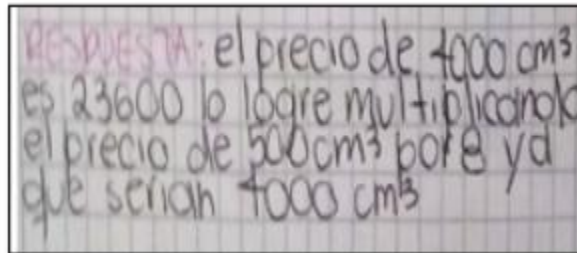 RESPUESTA: el precio de 4000 cm³
es 23600 lo logre multiplicando
el precio de 500cm³ por 8 ya
que serian 4000 cm³